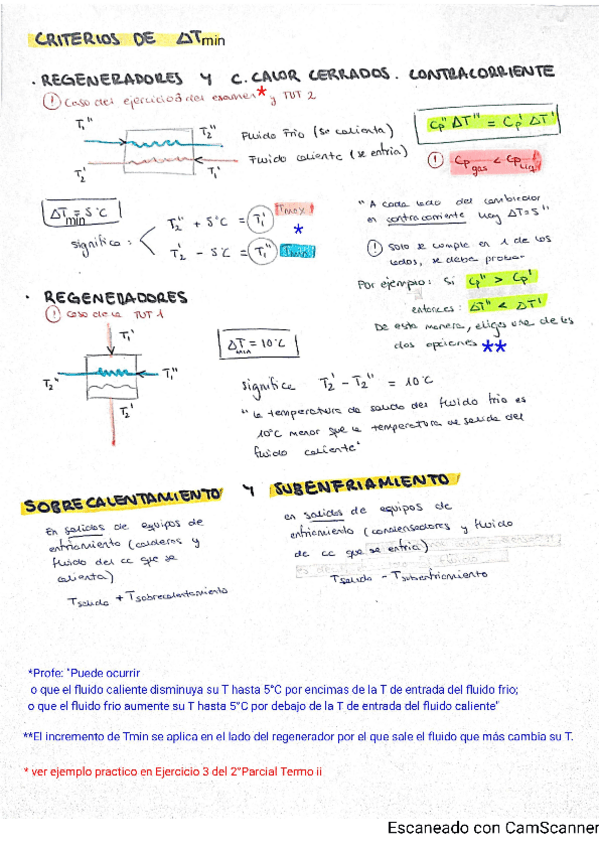 CRITERIOS DE ΔTmin
· REGENERADORES Y C. CALOR CERRADOS. CONTRACORRIENTE
! Caso del ejercicio 3 del examen* y TUT 2
T1'' T2'' Fluido frio (se calienta)
T2' T1' Fluido caliente (se enfría)
Cp'' ΔT'' = Cp' ΔT'
! Cp gas < Cp liq
ΔTmin = 5°C
significa:
T2'' + 5°C = T1' Tmax
*
T2' - 5°C = T1'' Tmin
"A cada lado del cambiador
en contracorriente hay ΔT=5"
! Solo se cumple en 1 de los
lados, se debe probar
Por ejemplo: Si Cp'' > Cp'
entonces: ΔT'' < ΔT'
De esta manera, eliges una de las
dos opciones **
· REGENERADORES
! Caso de la TUT 1
T1'
T2'' T1''
T2'
ΔTmin = 10°C
significa T2' - T2'' = 10°C
"la temperatura de salida del fluido frio es
10°C menor que la temperatura de salida del
fluido caliente"
SOBRECALENTAMIENTO Y SUBENFRIAMIENTO
En salidas de equipos de
enfriamiento (calderas y
fluido del cc que se
calienta)
Tsalida + Tsobrecalentamiento
en salidas de equipos de
enfriamiento (condensadores y fluido
de cc que se enfria)
Tsalida - Tsubenfriamiento
*Profe: "Puede ocurrir
o que el fluido caliente disminuya su T hasta 5°C por encimas de la T de entrada del fluido frio;
o que el fluido frio aumente su T hasta 5°C por debajo de la T de entrada del fluido caliente"
**El incremento de Tmin se aplica en el lado del regenerador por el que sale el fluido que más cambia su T.
* ver ejemplo practico en Ejercicio 3 del 2°Parcial Termo ii
Escaneado con CamScanner